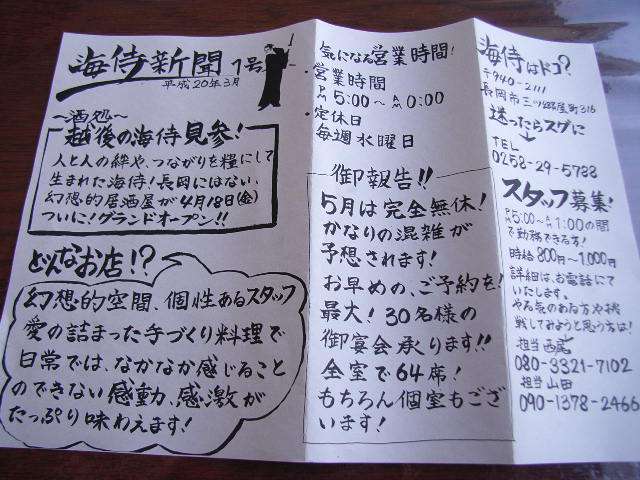 海侍新聞 1号
平成20年3月
〜酒処〜
越後の海侍見参!
人と人の絆や、つながりを糧にして
生まれた海侍!長岡にはない、
幻想的居酒屋が4月18日(金)
ついに!グランドオープン!!
どんなお店!?
幻想的空間、個性あるスタッフ
愛の詰まった手づくり料理で
日常では、なかなか感じること
のできない感動、感激が
たっぷり味わえます!
気になる営業時間!
営業時間
PM5:00〜AM0:00
定休日
毎週水曜日
御報告!!
5月は完全無休!
かなりの混雑が
予想されます!
お早めの、ご予約を!
最大!30名様の
御宴会承ります!!
全室で64席!
もちろん個室もござ
います!
海侍はドコ?
〒940-2111
長岡市三ツ郷屋町316
迷ったらスグに
TEL
0258-29-5788
スタッフ募集!
PM5:00〜AM1:00の間
で勤務できる方!
時給800円〜1,000円
詳細は、お電話にて
いたします。
やる気のある方や挑
戦してみようと思う方は!
担当西尾
080-3321-7102
担当山田
090-1378-2466